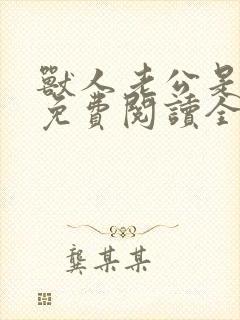 獸人老公是
免費閱讀全
龔某某